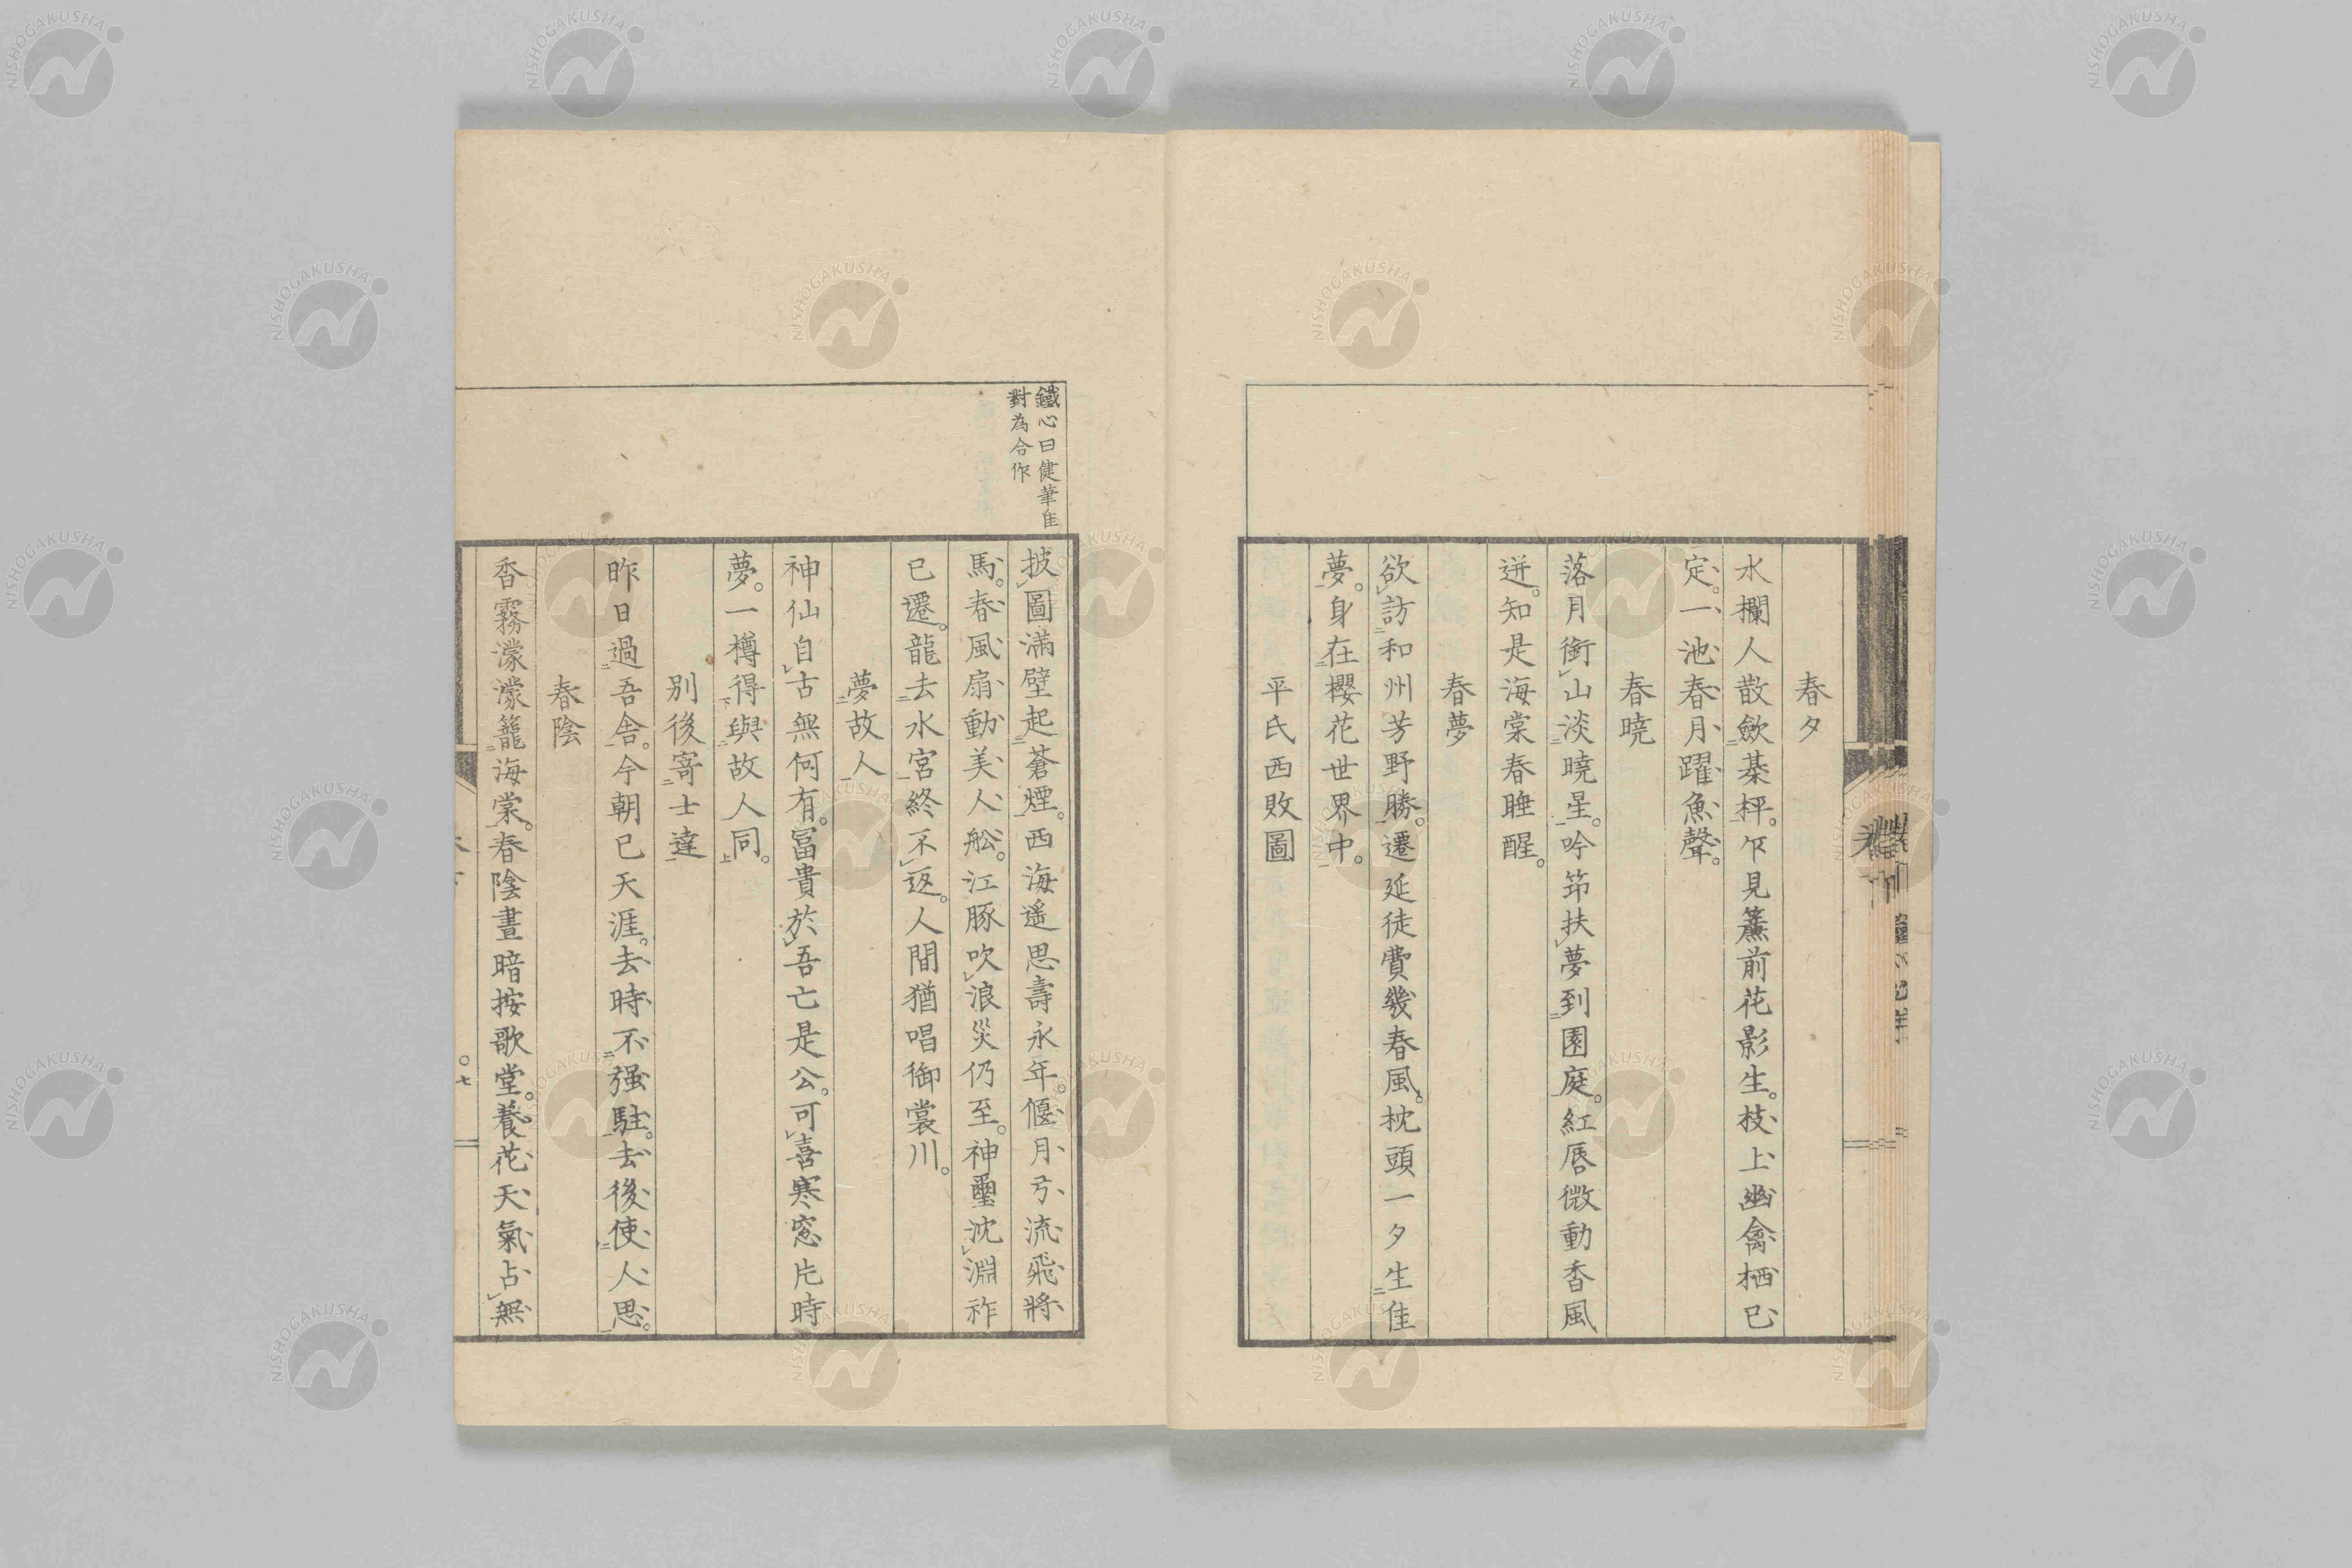 春夕
水欄人散歛棊枰。乍見簾前花影生。枝上幽禽栖已
定。一池春月躍魚聲。
春曉
落月銜山淡曉星。吟笻扶夢到園庭。紅唇微動香風
迸。知是海棠春睡醒。
春夢
欲訪和州芳野勝。遷延徒費幾春風。枕頭一夕生佳
夢。身在櫻花世界中。
平氏西敗圖
鐵心曰健筆佳
對為合作
披圖滿壁起蒼煙。西海遥思壽永年。偃月弓流飛將
馬。春風扇動美人舩。江豚吹浪災仍至。神璽沈淵祚
已遷。龍去水宮終不返。人間猶唱御裳川。
夢故人
神仙自古無何有。冨貴於吾亡是公。可喜寒窓片時
夢。一樽得與故人同。
別後寄士達
昨日過吾舍。今朝已天涯。去時不强駐。去後使人思。
春陰
香霧濛濛籠海棠。春陰晝暗按歌堂。養花天氣占無
〇七
NISHOGAKUSHA